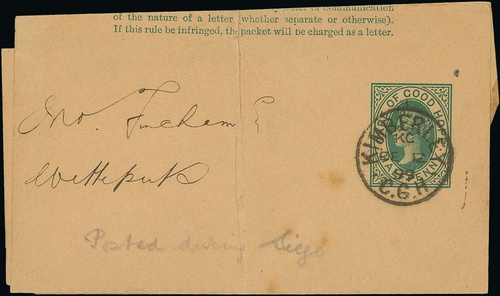 of the nature of a letter (whether separate or otherwise).
If this rule be infringed, the packet will be charged as a letter.
CAPE OF GOOD HOPE
HALF PENNY
KIMBERLEY
C.G.H
Mr. Fincham
Posted during Siege